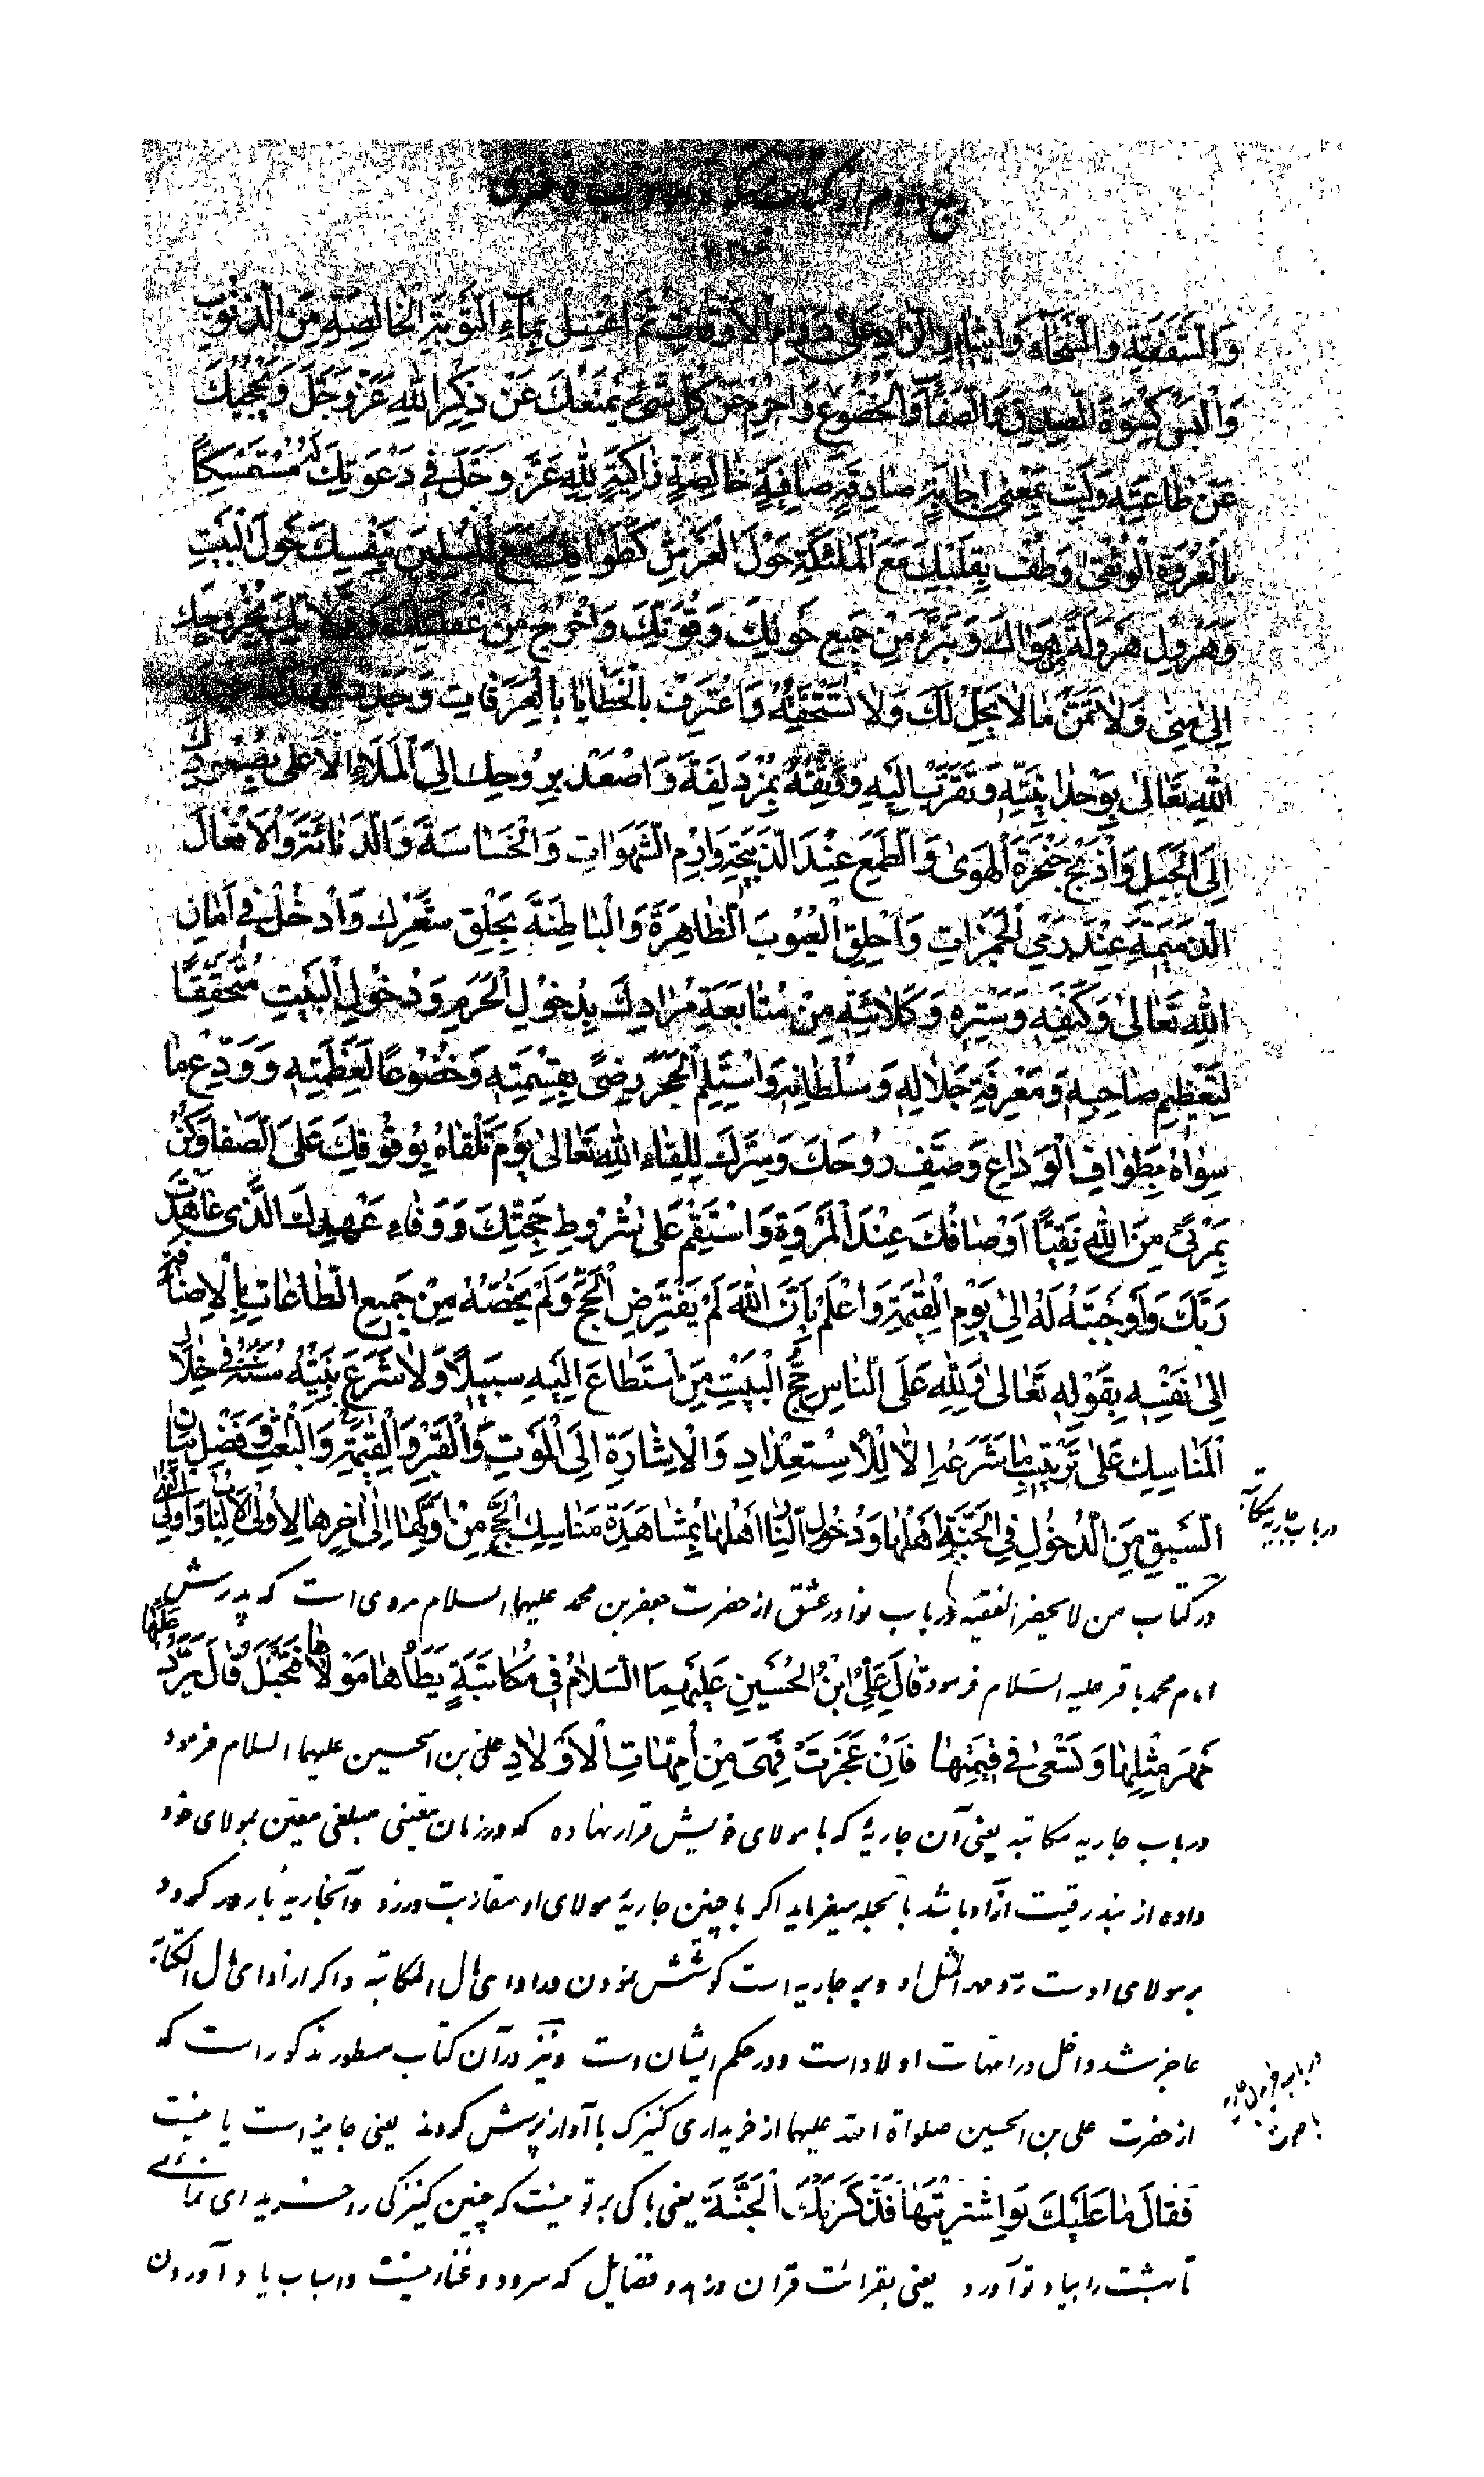 ربع دوم از کتاب مشکوة الادب ناصری
وَالشَّفَقَةِ وَالسَّخَاءِ وَايثَارِ الزَّادِ عَلَى دَوَامِ الْاَوْقَاتِ ثُمَّ اغْتَسِلْ بِمَاءِ التَّوْبَةِ الْخَالِصَةِ مِنَ الذُّنُوبِ
وَالْبَسْ كِسْوَةَ الصِّدْقِ وَالصَّفَا وَالْخُضُوعِ وَاحْرِمْ عَنْ كُلِّ شَىْءٍ يَمْنَعُكَ عَنْ ذِكْرِ اللهِ عَزَّ وَجَلَّ وَيَحْجُبُكَ
عَنْ طَاعَتِهِ وَلَبِّ بِمَعْنى اِجَابَةٍ صَادِقَةٍ صَافِيَةٍ خَالِصَةٍ زَاكِيَةٍ لِلّٰهِ عَزَّ وَجَلَّ فى دَعْوَتِكَ لَهُ مُتَمَسِّكاً
بِالْعُرْوَةِ الْوُثْقى وَطُفْ بِقَلْبِكَ مَعَ الْمَلٰئِكَةِ حَوْلَ الْعَرْشِ كَطَوَافِكَ مَعَ الْمُسْلِمِينَ بِنَفْسِكَ حَوْلَ الْبَيْتِ
وَهَرْوِلْ هَرْوَلَةً مِنْ هَوَاكَ وَتَبَرَّءْ مِنْ جَمِيعِ حَوْلِكَ وَقُوَّتِكَ وَاخْرُجْ مِنْ غَفْلَتِكَ وَزَلَّاتِكَ بِخُرُوجِكَ
اِلىٰ مِنىٰ وَلَا تَمَنَّ مَا لَا يَحِلُّ لَكَ وَلَا تَسْتَحِقُّهُ وَاعْتَرِفْ بِالْخَطَايَا بِالْعَرَفَاتِ وَجَدِّدْ عَهْدَكَ عِنْدَ
اللهِ تَعَالىٰ بِوَحْدَانِيَّتِهِ وَتَقَرَّبْ اِلَيْهِ وَثِقَةً بِمُزْدَلِفَةَ وَاصْعَدْ بِرُوحِكَ اِلَى الْمَلَاءِ الْاَعْلىٰ بِصُعُودِكَ
اِلَى الْجَبَلِ وَاذْبَحْ حَنْجَرَةَ الْهَوىٰ وَالطَّمَعِ عِنْدَ الذَّبِيحَةِ وَارْمِ الشَّهَوَاتِ وَالْخَسَاسَةَ وَالدَّنَائَةَ وَالْاَفْعَالَ
الذَّمِيمَةَ عِنْدَ رَمْىِ الْجَمَرَاتِ وَاحْلِقِ الْعُيُوبَ الظَّاهِرَةَ وَالْبَاطِنَةَ بِحَلْقِ شَعْرِكَ وَادْخُلْ فى اَمَانِ
اللهِ تَعَالىٰ وَكَنَفِهِ وَسَتْرِهِ وَكَلَائَتِهِ مِنْ مُتَابَعَةِ مُرَادِكَ بِدُخُولِ الْحَرَمِ وَدُخُولِ الْبَيْتِ مُتَحَقِّقاً
لِتَعْظِيمِ صَاحِبِهِ وَمَعْرِفَةِ جَلَالِهِ وَسُلْطَانِهِ وَاسْتَلِمِ الْحَجَرَ رِضىً بِقِسْمَتِهِ وَخُضُوعاً لِعَظَمَتِهِ وَوَدِّعْ مَا
سِوَاهُ بِطَوَافِ الْوَدَاعِ وَصَفِّ رُوحَكَ وَسِرَّكَ لِلِقَاءِ اللهِ تَعَالىٰ يَوْمَ تَلْقَاهُ بِوُقُوفِكَ عَلَى الصَّفَا وَكُنْ
بِمَرْئىً مِنَ اللهِ نَقِيّاً اَوْصَافُكَ عِنْدَ الْمَرْوَةِ وَاسْتَقِمْ عَلىٰ شُرُوطِ حَجَّتِكَ وَوَفَاءِ عَهْدِكَ الَّذى عَاهَدْتَ
رَبَّكَ وَاَوْجَبْتَهُ لَهُ اِلىٰ يَوْمِ الْقِيٰمَةِ وَاعْلَمْ بِاَنَّ اللهَ لَمْ يَفْتَرِضِ الْحَجَّ وَلَمْ يَخُصَّهُ مِنْ جَمِيعِ الطَّاعَاتِ بِالْاِضَافَةِ
اِلىٰ نَفْسِهِ بِقَوْلِهِ تَعَالىٰ وَلِلّٰهِ عَلَى النَّاسِ حِجُّ الْبَيْتِ مَنِ اسْتَطَاعَ اِلَيْهِ سَبِيلاً وَلَا شَرَعَ نَبِيُّهُ سُنَّةً فى خِلَالِ
الْمَنَاسِكِ عَلىٰ تَرْتِيبِ مَا شَرَعَهُ اِلَّا لِلْاِسْتِعْدَادِ وَالْاِشَارَةِ اِلَى الْمَوْتِ وَالْقَبْرِ وَالْقِيٰمَةِ وَالْبَعْثِ وَفَضْلِ بَيَانِ
السَّبْقِ مِنَ الدُّخُولِ فِى الْجَنَّةِ اَهْلُهَا وَدُخُولِ النَّارِ اَهْلُهَا بِمُشَاهَدَةِ مَنَاسِكِ الْحَجِّ مِنْ اَوَّلِهَا اِلىٰ آخِرِهَا لِاُولِى الْاَلْبَابِ وَاُولِى النُّهىٰ
در باب جاریه مکاتبه
در کتاب من لا یحضر الفقیه در باب نوادر عتق از حضرت جعفر بن محمد علیهما السلام مروی است که پدرش
امام محمد باقر علیه السلام فرمود قَالَ عَلِىُّ ابْنُ الْحُسَيْنِ عَلَيْهِمَا السَّلَامُ فى مُكَاتَبَةٍ يَطَأُهَا مَوْلَاهَا فَتَحْبَلُ قَالَ يَرُدُّ عَلَيْهَا
مَهْرَ مِثْلِهَا وَتَسْعىٰ فى قِيمَتِهَا فَاِنْ عَجَزَتْ فَهِىَ مِنْ اُمَّهَاتِ الْاَوْلَادِ علی بن الحسین علیهما السلام فرمود
در باب جاریه مکاتبه یعنی آن جاریهٔ که با مولای خویش قرار نهاده که در زمان معینی مبلغی معین بمولای خود
داده از بند رقیت آزاد باشد بالجمله میفرماید اگر با چنین جاریهٔ مولای او مقاربت ورزد و آنجاریه باردار گردد
بر مولای اوست رد مهر المثل او و بر جاریه است کوشش نمودن در ادای مال المکاتبه و اگر از ادای مال الکتابه
عاجز شد داخل در امهات اولاد است و در حکم ایشان است و نیز در آن کتاب مسطور مذکور است که
در باب خریدن جاریه
با صوت
از حضرت علی بن الحسین صلواة الله علیهما از خریداری کنیزک با آواز پرسش کردند یعنی جایز است یا نیست
فَقَالَ مَا عَلَيْكَ لَوِ اشْتَرَيْتَهَا فَذَكَّرَتْكَ الْجَنَّةَ یعنی باکی بر تو نیست که چنین کنیزکی را خریداری نمائی
تا بهشت را بیاد تو آورد یعنی بقرائت قرآن و زهد و فضایل که سرود و غنا نیست و اسباب یاد آوردن